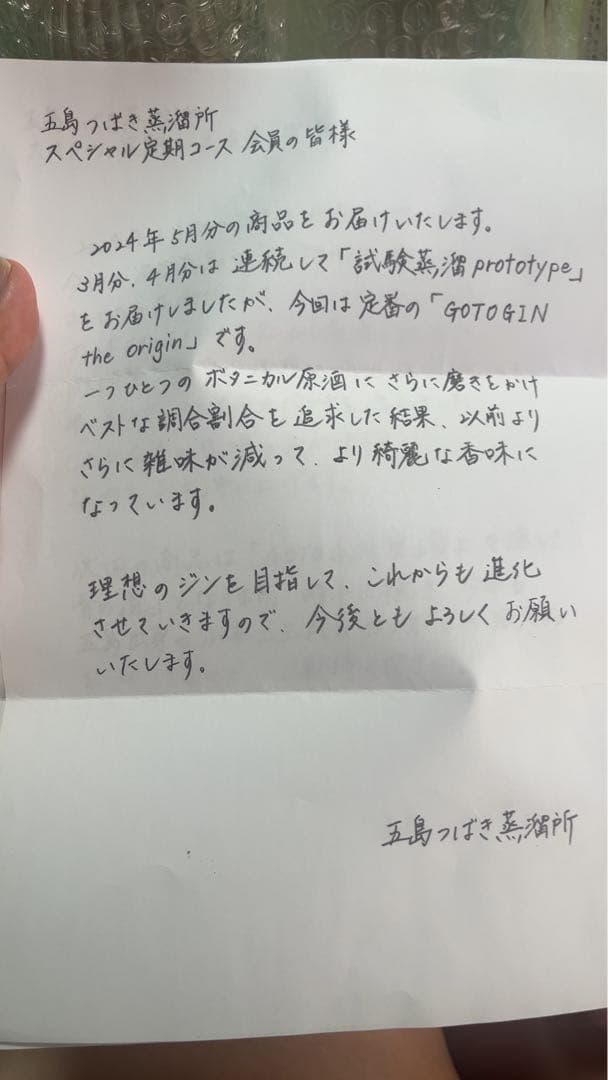 五島つばき蒸溜所
スペシャル定期コース 会員の皆様
2024年5月分の商品をお届けいたします。
3月分、4月分は 連続して「試験蒸溜prototype」
をお届けしましたが、今回は定番の「GOTOGIN
the origin」です。
一つひとつの ボタニカル原酒に さらに磨きをかけ
ベストな調合割合を追求した結果、以前より
さらに雑味が減って、より綺麗な香味に
なっています。
理想のジンを目指して、これからも進化
させていきますので、今後とも よろしく お願い
いたします。
五島つばき蒸溜所